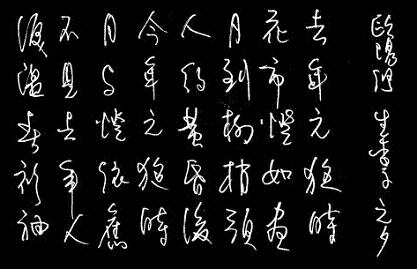 歐陽修 生查子 元夕
去年元夜時
花市燈如晝
月到柳梢頭
人約黃昏後
今年元夜時
月与燈依舊
不見去年人
淚濕春衫袖